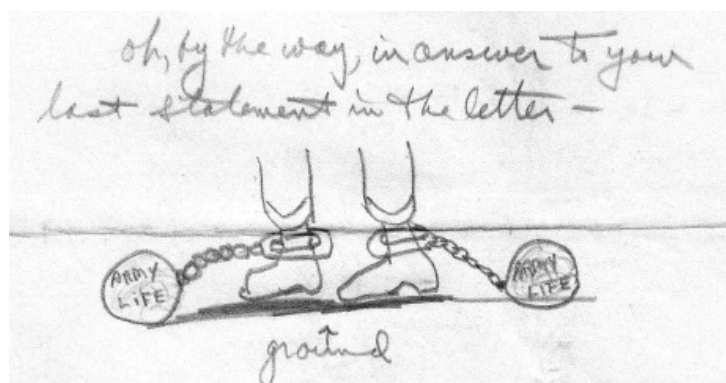 oh, by the way, in answer to your
last statement in the letter –
ARMY
LIFE
ARMY
LIFE
ground